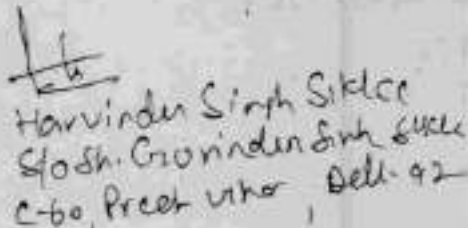 Harvinder Singh Sikka
S/o Sh. Govinder Singh Sikka
C-60, Preet Vihar, Delhi-92